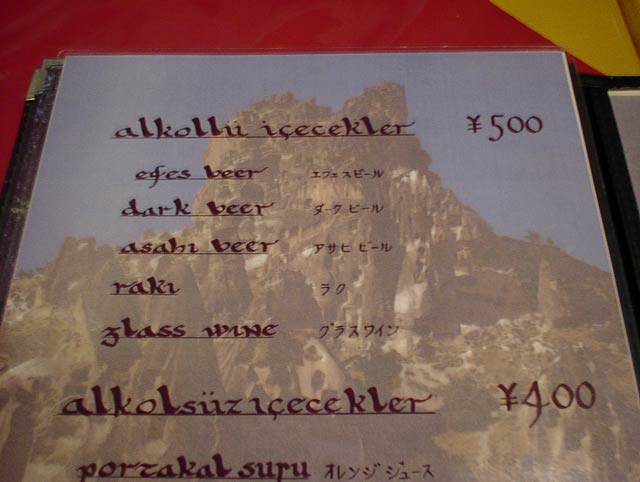 alkollü içecekler ¥500
efes beer エフェスビール
dark beer ダークビール
asahı beer アサヒビール
rakı ラク
glass wıne グラスワイン
alkolsüz ıçecekler ¥400
portakal suyu オレンジジュース